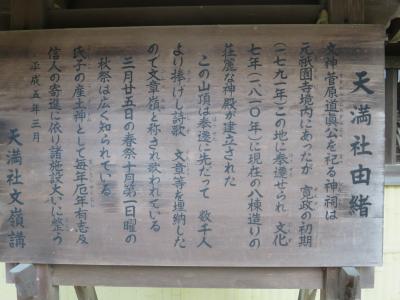 天満社由緒
文神菅原道眞公を祀る神祠は
元祇園寺境内にあったが 寛政の初期
(一七九一年)この地に奉遷せられ 文化
七年(一八一〇年)に現在の八棟造りの
荘麗な神殿が建立された
この山頂は奉遷に先だって 数千人
より捧げし詩歌 文章等を埋納した
ので文章嶺と称され敬われている
三月廿五日の春祭 十月第一日曜の
秋祭は広く知られている
氏子の産土神として毎年厄年有志及
信人の寄進に依り諸施設大いに整う
平成五年三月
天満社文嶺講